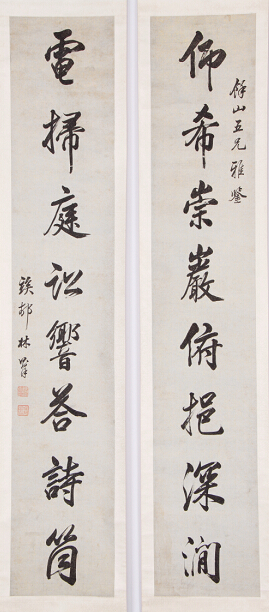 山五兄雅鑒
仰希崇巖俯挹深澗
電掃庭訟響答詩筒
邨林